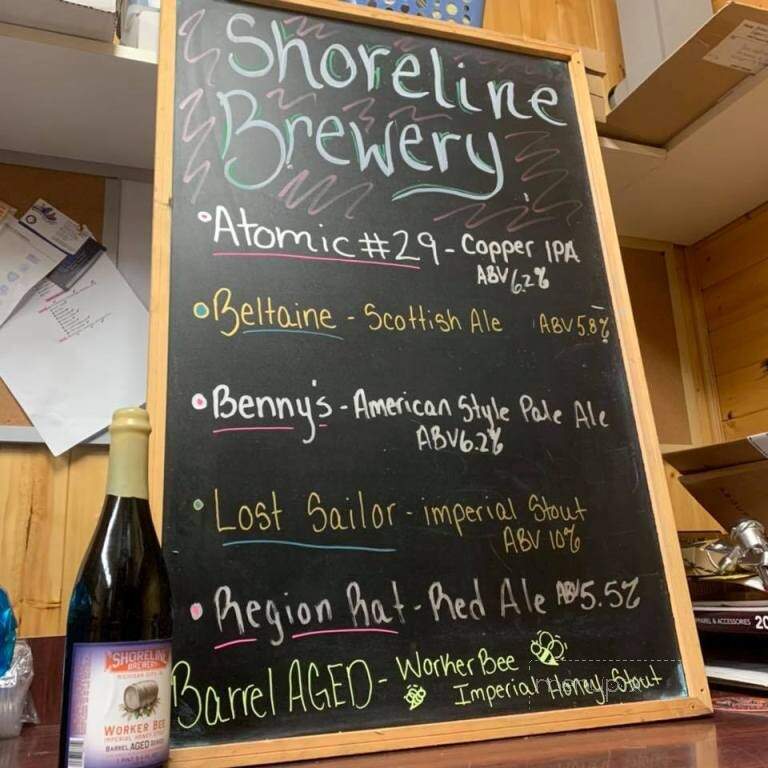 Shoreline
Brewery
Atomic #29 - Copper IPA
ABV 6.2%
Beltaine - Scottish Ale ABV 5.8%
Benny's - American Style Pale Ale
ABV 6.2%
Lost Sailor - imperial Stout
ABV 10%
Region Rat - Red Ale ABV 5.5%
Barrel AGED - Worker Bee
Imperial Honey Stout
SHORELINE
BREWERY
MICHIGAN CITY, IN
WORKER BEE
IMPERIAL HONEY STOUT
BARREL AGED SERIES
APPAREL & ACCESSORIES 20